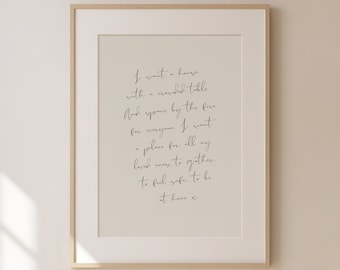 I want a house
with a crowded table
And space by the fire
for everyone I want
a place for all my
loved ones to gather,
to feel safe to be
at home x